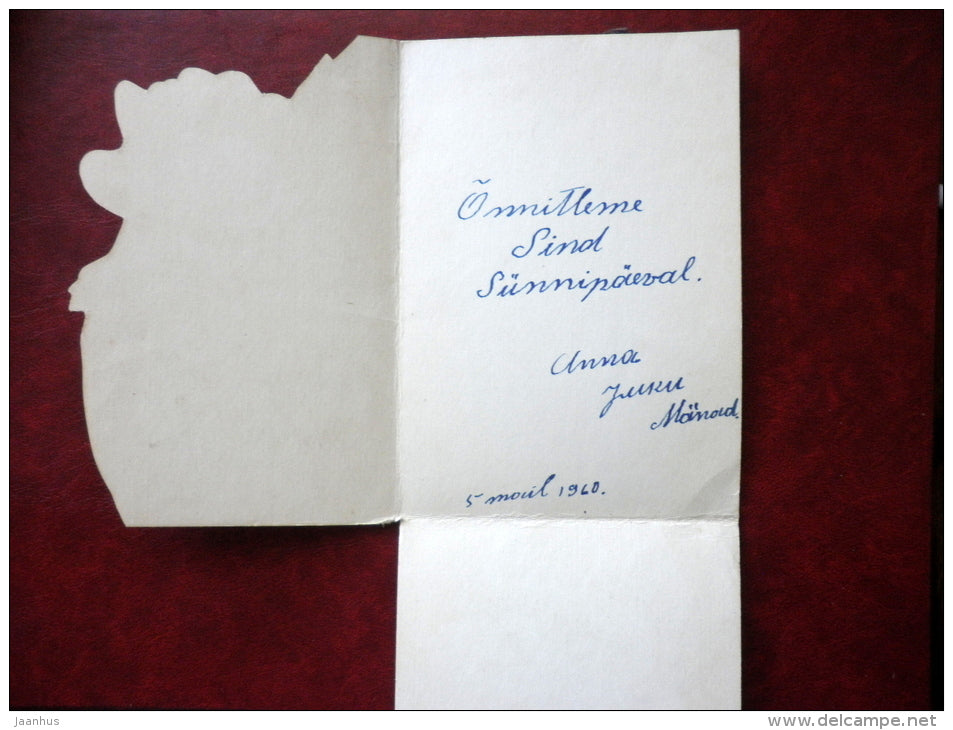 Õnnitleme
Sind
Sünnipäeval.
Anna
Juku
Mänoid.
5 mail 1960.
jaanhus
www.delcampe.net